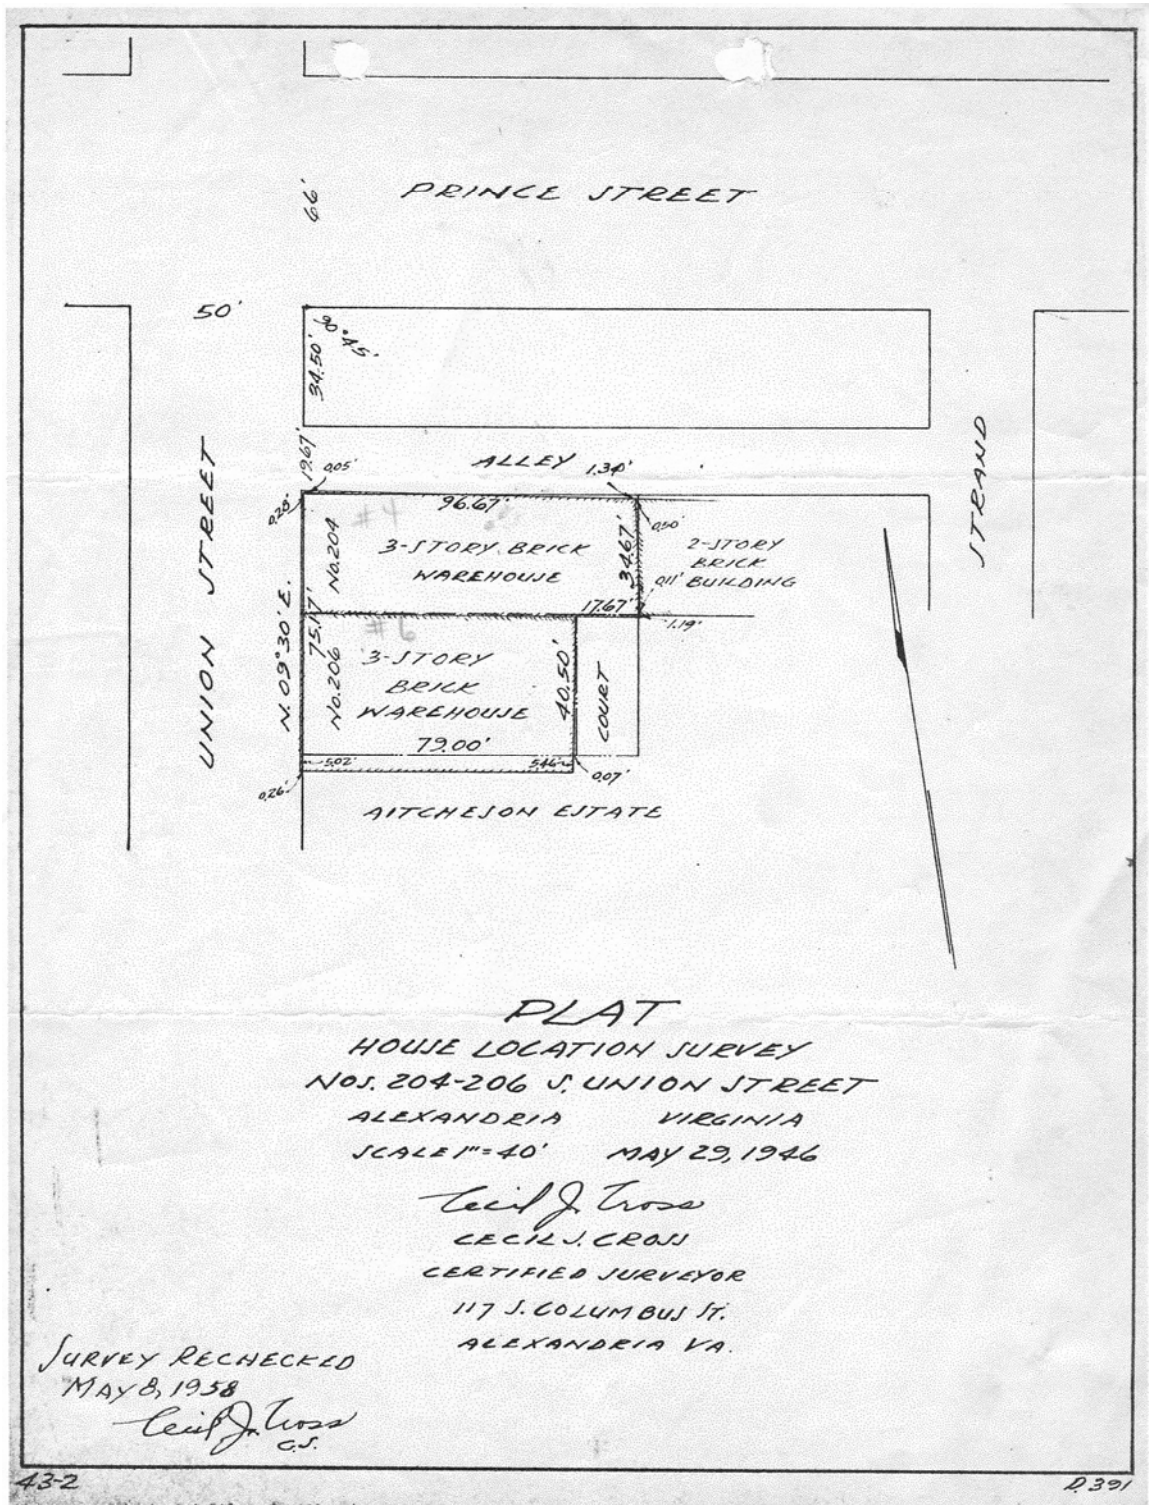 66'
PRINCE STREET
50'
34.50'
90°45'
19.67'
0.05'
ALLEY
1.34'
0.28'
96.67'
0.50'
No. 204
3-STORY BRICK
WAREHOUSE
34.67'
2-STORY
BRICK
BUILDING
0.11'
17.67'
1.19'
UNION STREET
STRAND
N. 09°30' E.
75.17'
No. 206
3-STORY
BRICK
WAREHOUSE
40.50'
COURT
79.00'
5.02'
5.46'
0.07'
0.26'
AITCHESON ESTATE
PLAT
HOUSE LOCATION SURVEY
NOS. 204-206 S. UNION STREET
ALEXANDRIA VIRGINIA
SCALE 1"=40' MAY 29, 1946
Cecil J. Cross
CECIL J. CROSS
CERTIFIED SURVEYOR
117 S. COLUMBUS ST.
ALEXANDRIA VA.
SURVEY RECHECKED
MAY 8, 1958
Cecil J. Cross
C.S.
43-2
D. 391